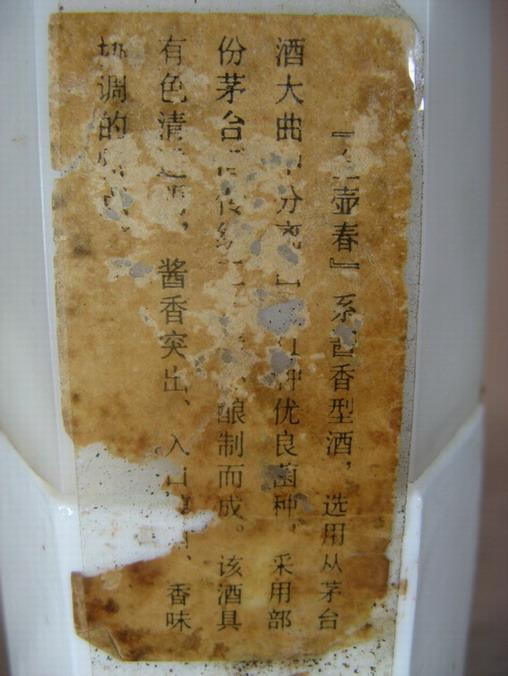 壶春』系酱香型酒，选用从茅台
酒大曲中分离 优良菌种，采用部
份茅台 传统 酿制而成。该酒具
有色清 酱香突出、入口 香味
协调的